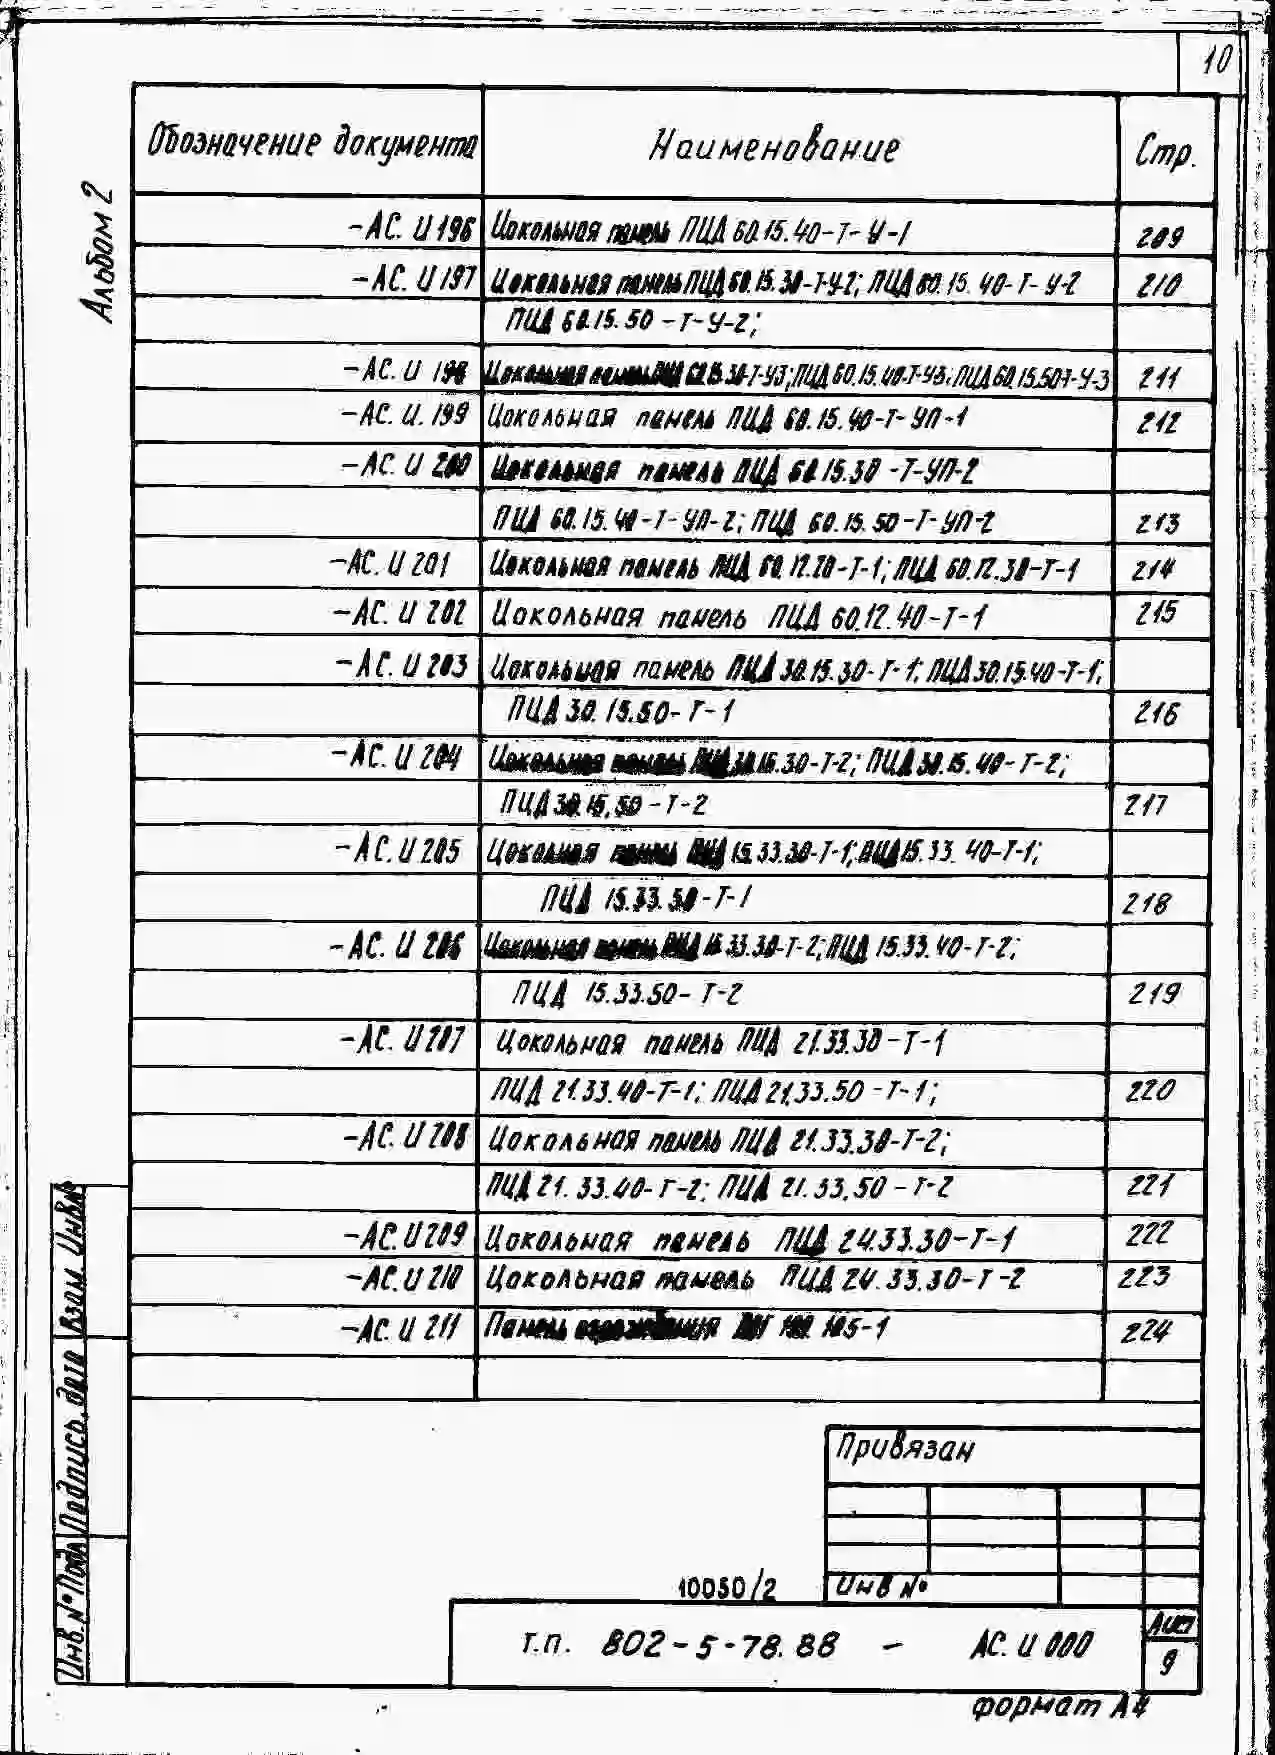 10
Альбом 2
Обозначение документа Наименование Стр.
-АС. И 196 Цокольная панель ПЦД 60.15.40-Т-У-1 209
-АС. И 197 Цокольная панель ПЦД 60.15.30-Т-У-2; ПЦД 60.15.40-Т-У-2 210
ПЦД 60.15.50-Т-У-2;
-АС. И 198 Цокольная панель ПЦД 60.15.30-Т-У3; ПЦД 60.15.40-Т-У3; ПЦД 60.15.50Т-У-3 211
-АС. И. 199 Цокольная панель ПЦД 60.15.40-Т-УП-1 212
-АС. И 200 Цокольная панель ПЦД 60.15.30-Т-УП-2
ПЦД 60.15.40-Т-УП-2; ПЦД 60.15.50-Т-УП-2 213
-АС. И 201 Цокольная панель ПЦД 60.12.20-Т-1; ПЦД 60.12.30-Т-1 214
-АС. И 202 Цокольная панель ПЦД 60.12.40-Т-1 215
-АС. И 203 Цокольная панель ПЦД 30.15.30-Т-1; ПЦД 30.15.40-Т-1;
ПЦД 30.15.50-Т-1 216
-АС. И 204 Цокольная панель ПЦД 30.15.30-Т-2; ПЦД 30.15.40-Т-2;
ПЦД 30.15.50-Т-2 217
-АС. И 205 Цокольная панель ПЦД 15.33.30-Т-1; ПЦД 15.33.40-Т-1;
ПЦД 15.33.50-Т-1 218
-АС. И 206 Цокольная панель ПЦД 15.33.30-Т-2; ПЦД 15.33.40-Т-2;
ПЦД 15.33.50-Т-2 219
-АС. И 207 Цокольная панель ПЦД 21.33.30-Т-1
ПЦД 21.33.40-Т-1; ПЦД 21.33.50-Т-1; 220
-АС. И 208 Цокольная панель ПЦД 21.33.30-Т-2;
ПЦД 21.33.40-Т-2; ПЦД 21.33.50-Т-2 221
-АС. И 209 Цокольная панель ПЦД 24.33.30-Т-1 222
-АС. И 210 Цокольная панель ПЦД 24.33.30-Т-2 223
-АС. И 211 Панель ограждения 105-1 224
Инв. № Подл Подпись, дата Взам. Инв.№
Привязан
Инв №
10050/2
т.п. 802-5-78.88 - АС. И 000
Лист
9
формат А4